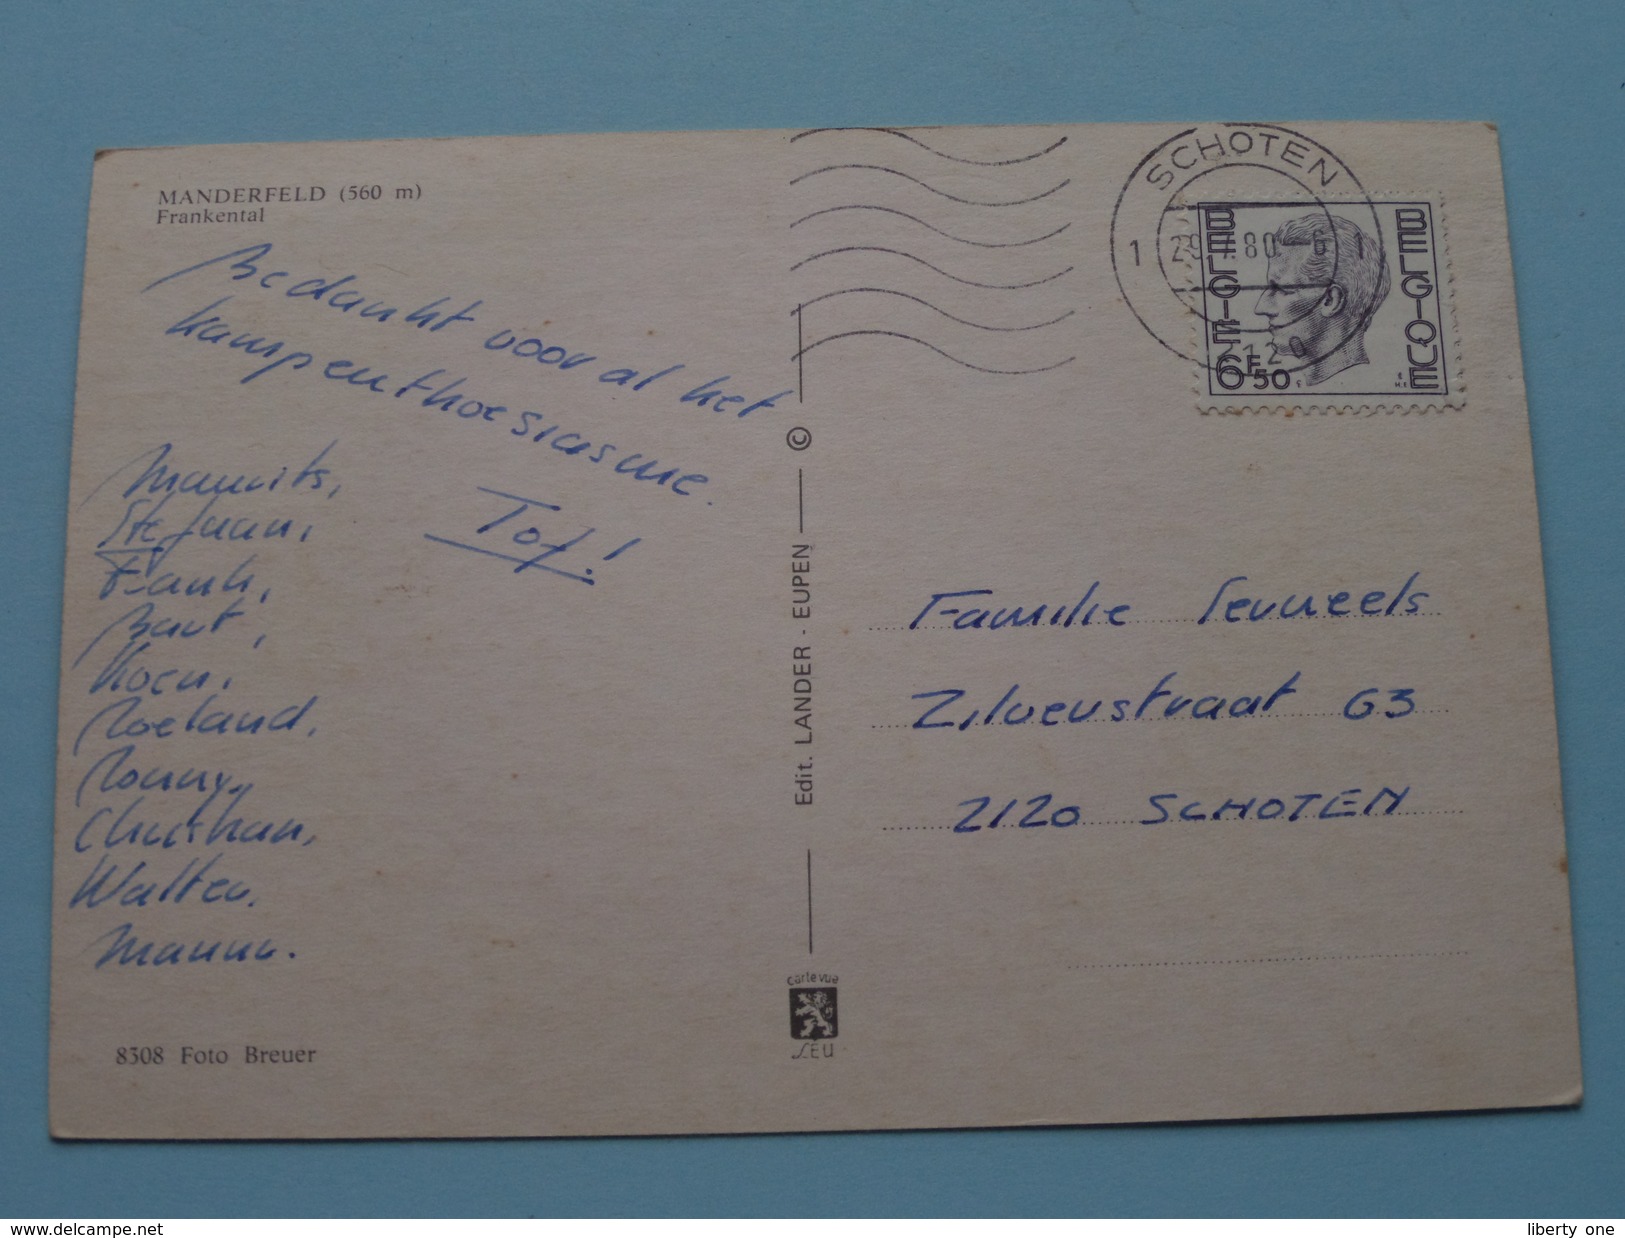 MANDERFELD (560 m)
Frankental
Bedankt voor al het
kampenthoesiasme.
Tof!
Maurits,
Stefaan,
Frank,
Bart,
Koen,
Roeland,
Ronny,
Christian,
Walter,
8308 Foto Breuer
Edit. LANDER - EUPEN ©
carte vue
SCHOTEN
1 29 80 -6 1
2120
BELGIE BELGIQUE
6F50
Familie
Zilverstraat 63
2120 SCHOTEN
www.delcampe.net
liberty_one